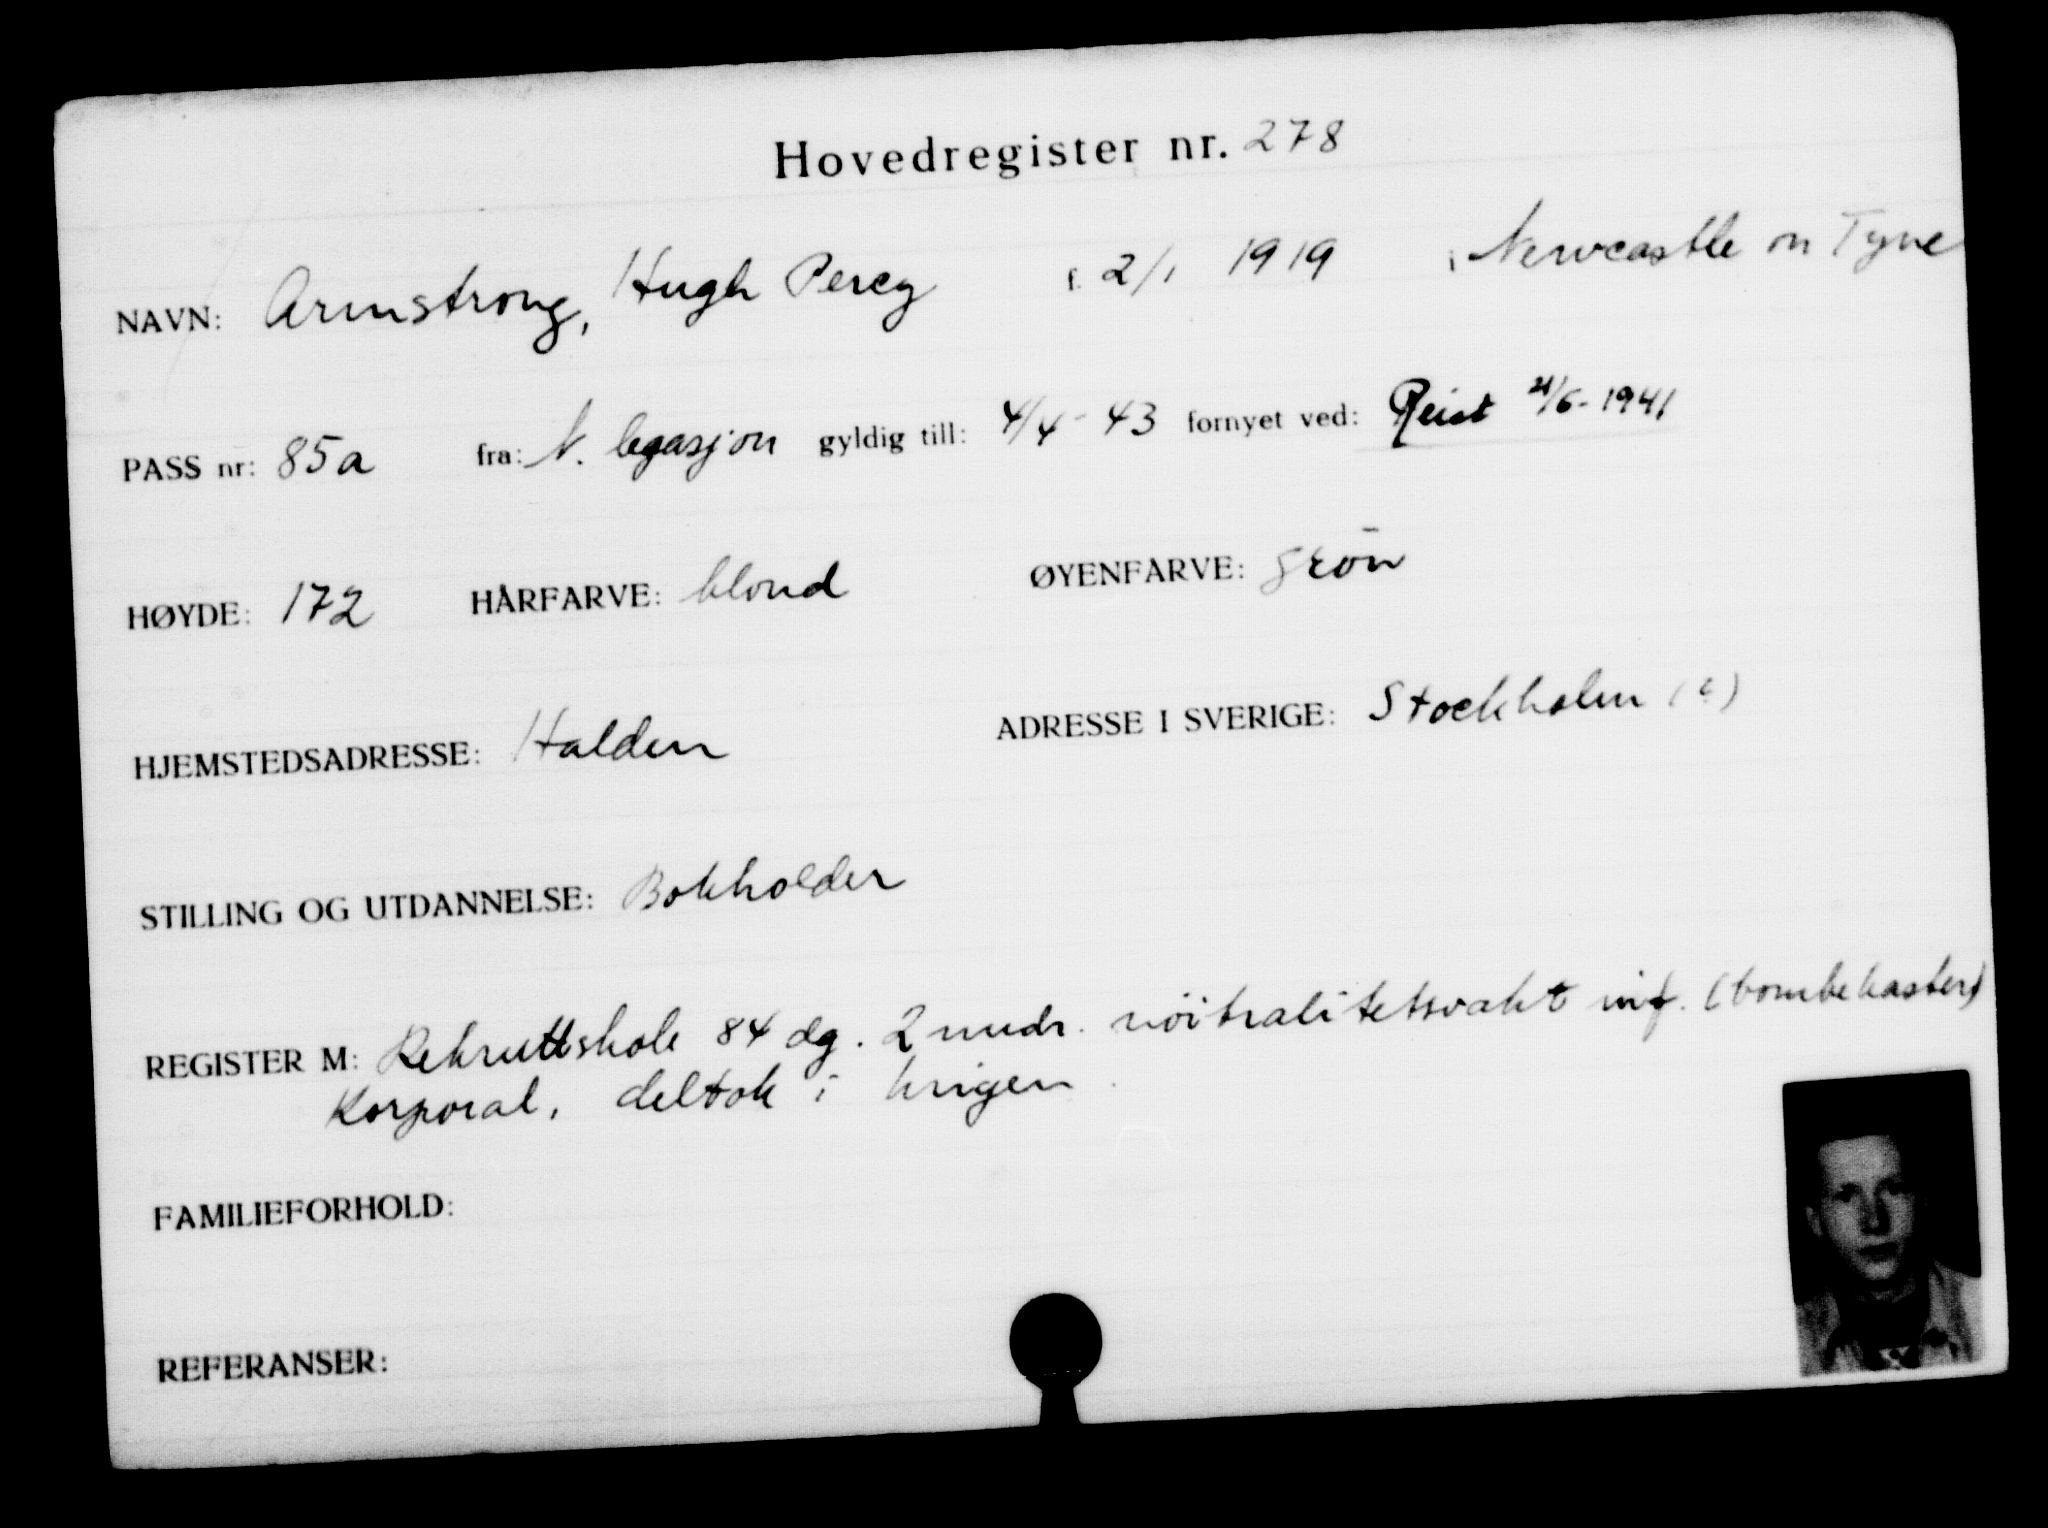 Hovedregister nr. 278
NAVN: Armstrong, Hugh Percy f. 2/1 1919 i Newcastle on Tyne
PASS nr: 85a fra: N. legasjon gyldig till: 4/4 - 43 fornyet ved: Reist 21/6 - 1941
HØYDE: 172 HÅRFARVE: blond ØYENFARVE: grön
HJEMSTEDSADRESSE: Halden ADRESSE I SVERIGE: Stockholm
STILLING OG UTDANNELSE: Bokholder
REGISTER M: Rekruttskole 84 dg. 2 mndr. nöitralitetsvakt inf. (bombekaster)
Korporal, deltok i krigen.
FAMILIEFORHOLD:
REFERANSER: